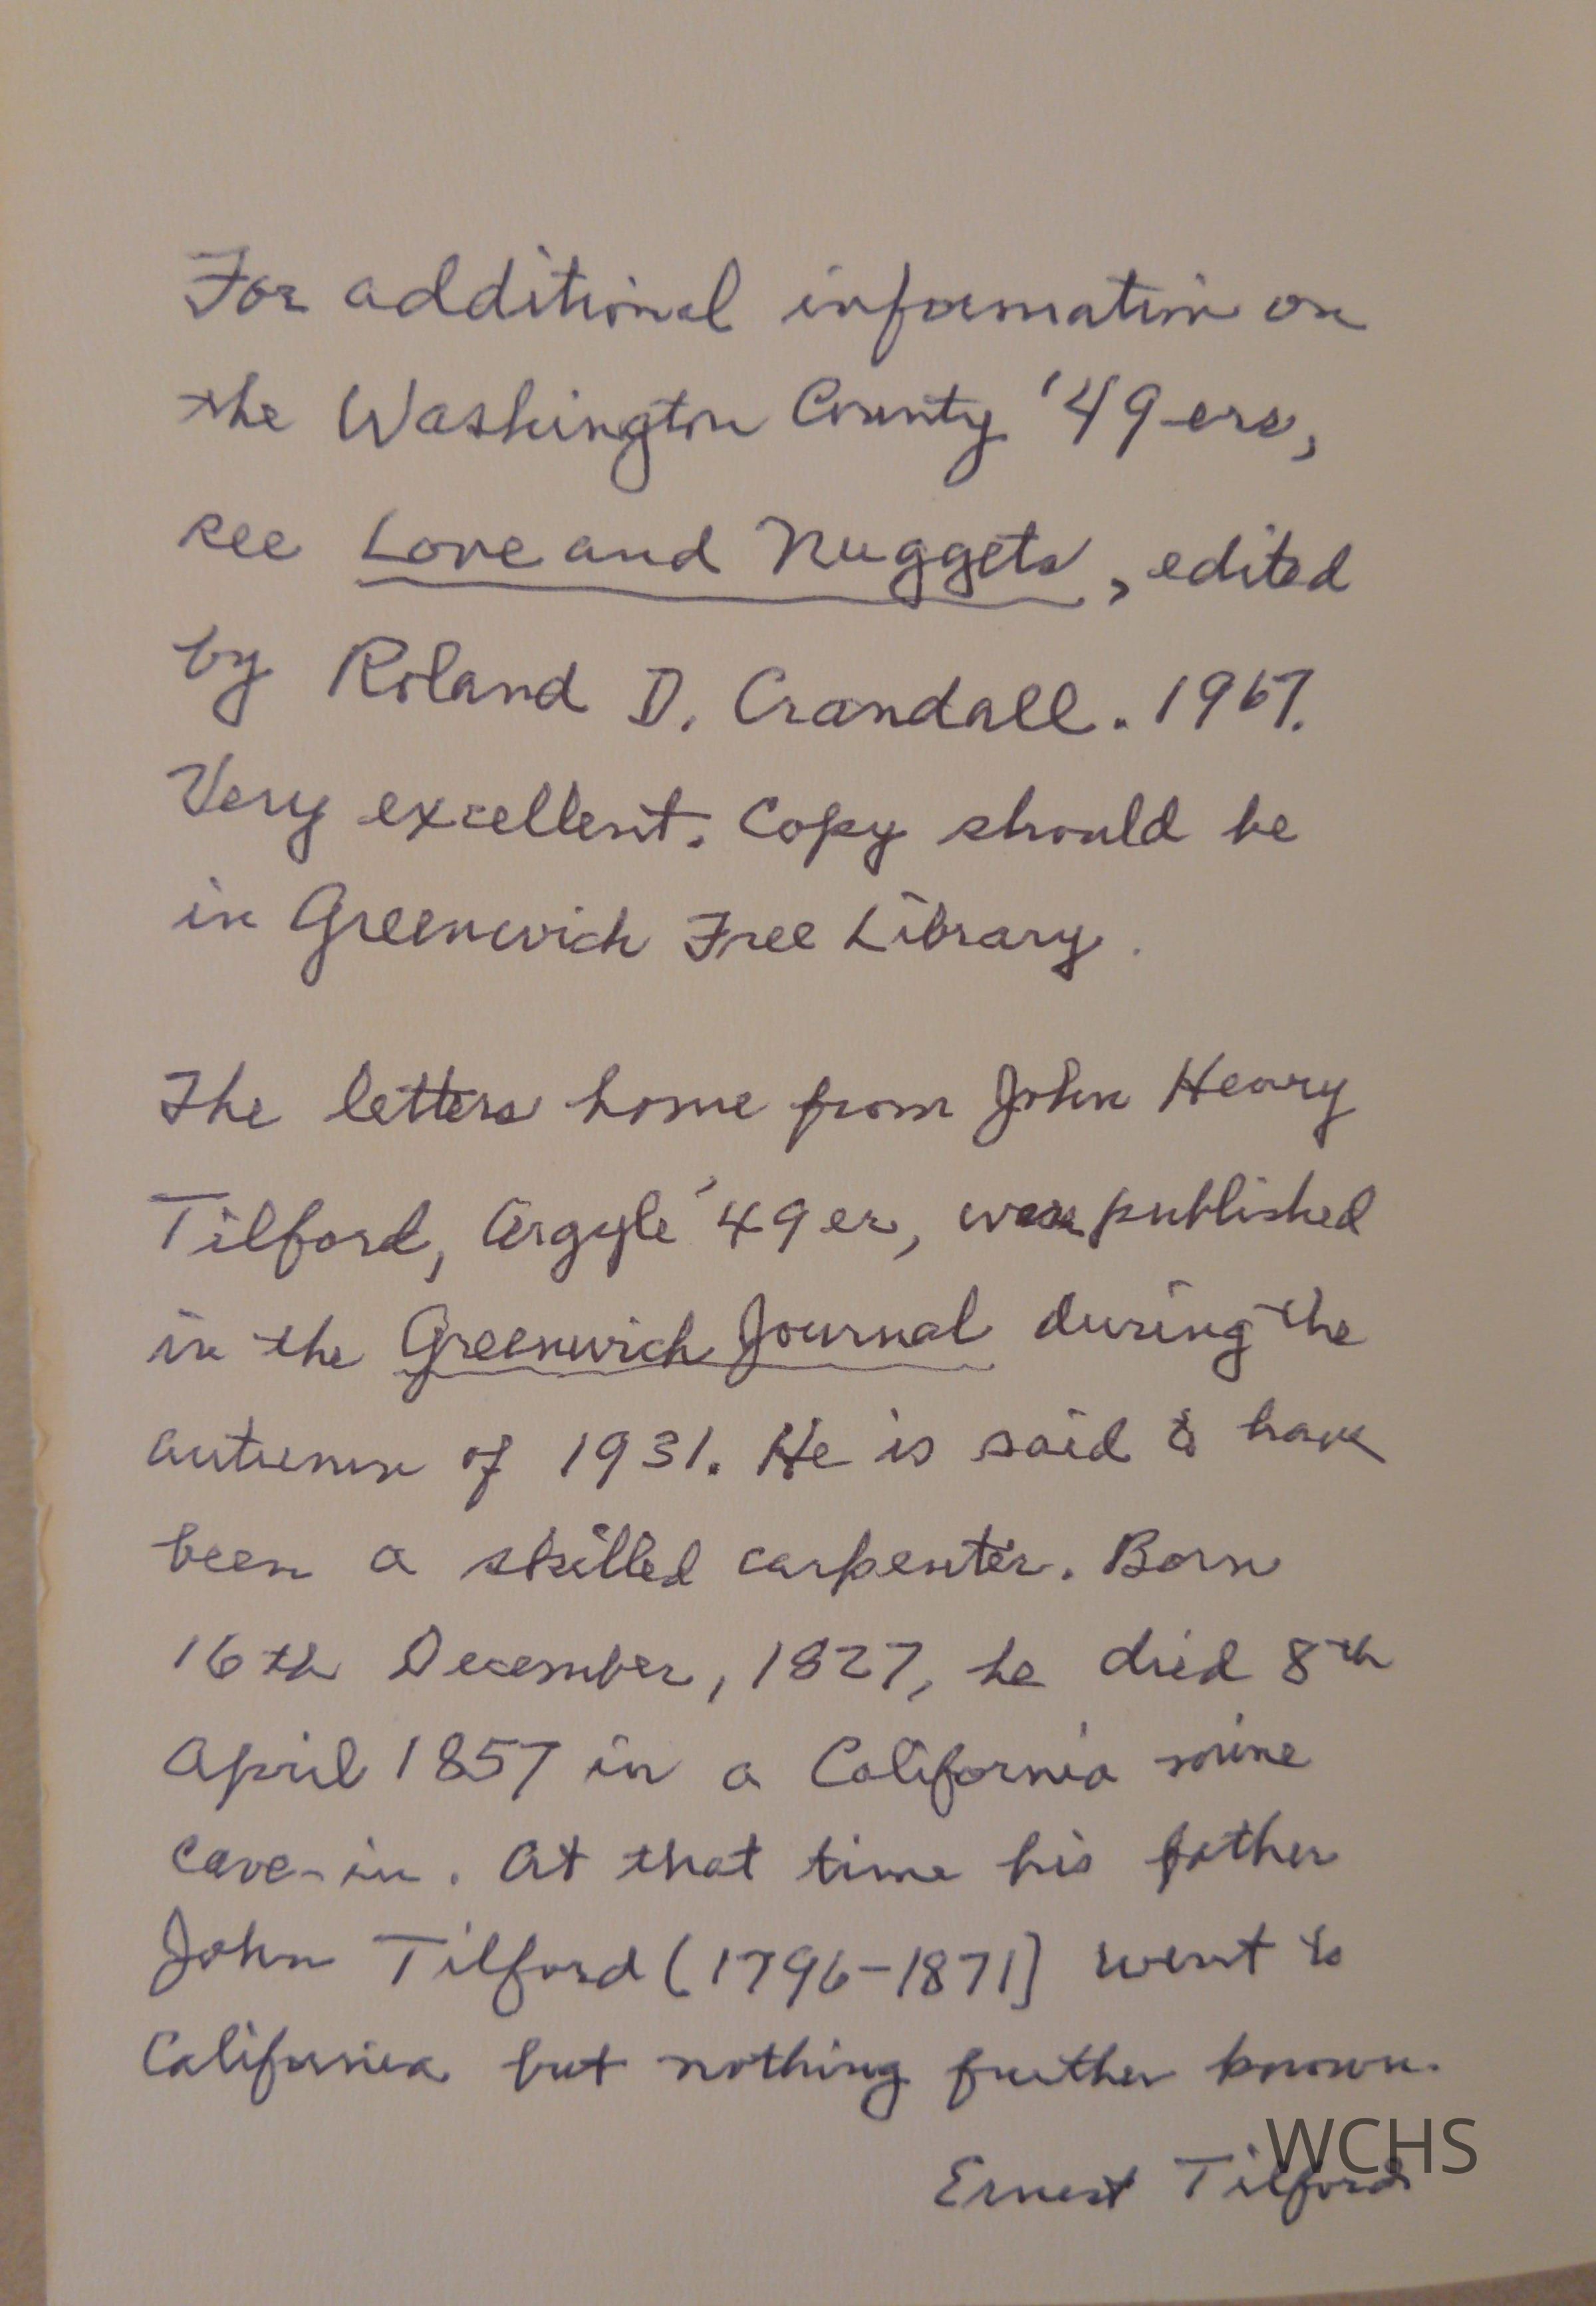 For additional information on
the Washington County '49ers,
see Love and Nuggets, edited
by Roland D. Crandall. 1967.
Very excellent. Copy should be
in Greenwich Free Library.
The letters home from John Henry
Tilford, Argyle '49er, were published
in the Greenwich Journal during the
autumn of 1931. He is said to have
been a skilled carpenter. Born
16th December, 1827, he died 8th
April 1857 in a California mine
cave-in. At that time his father
John Tilford (1796-1871) went to
California but nothing further known.
WCHS
Ernest Tilford